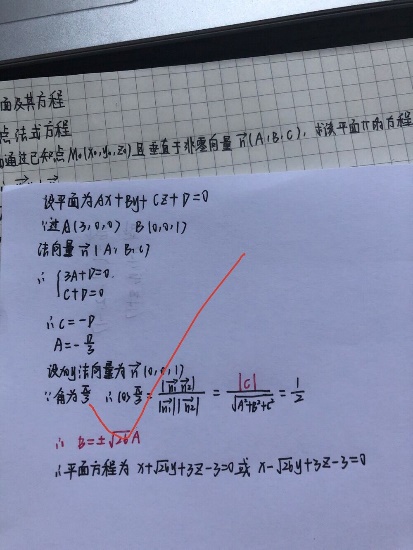 面及其方程
点法式方程
通过已知点 M₀(x₀,y₀,z₀) 且垂直于非零向量 n⃗(A,B,C), 求该平面π的方程
设平面为Ax+By+Cz+D=0
∵过A(3,0,0) B(0,0,1)
法向量 n⃗(A,B,C)
∴ { 3A+D=0 C+D=0
∴ C=-D
A=-D/3
设xoy法向量为 n⃗(0,0,1)
∵角为π/3 ∴ cosπ/3 = |n⃗₁ n⃗₂| / |n⃗₁||n⃗₂| = |C| / √(A²+B²+C²) = 1/2
∴ B=±√26A
∴平面方程为 x+√26y+3z-3=0或 x-√26y+3z-3=0